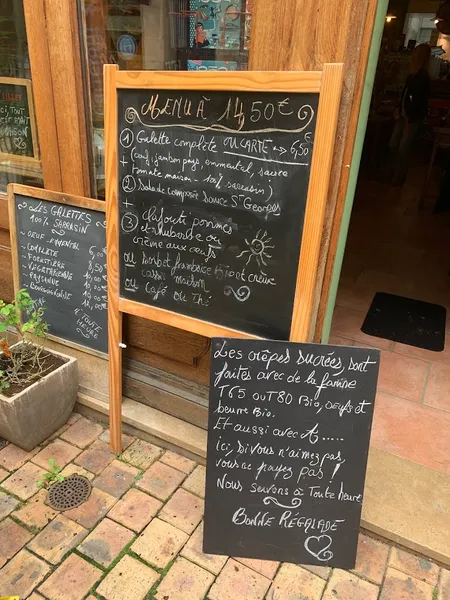 MENU À 14,50€
① Galette complète OU CARTE 6,50
+ (œuf, jambon pays, emmental, sauce
tomate maison - 100% sarrasin)
+ ② Salade composée Douce St Georges
+
③ clafouti pommes
et rhubarbe ou
crème aux œufs
ou Sorbet framboise Bio et crème
cassis maison
ou Café ou Thé
LES GALETTES
100% SARRASIN
- OEUF EMMENTAL 6,00
- COMPLETE
- FORESTIÈRE
- VEGETARIENNE
- PAYSANNE
- BOURGUIGNONNE
A TOUTE
HEURE
Les crêpes sucrées, sont
faites avec de la farine
T65 ou T80 Bio, oeufs et
beurre Bio.
Et aussi avec A.....
ici, si vous n'aimez pas,
vous ne payez pas !
Nous servons à Toute heure
BONNE RÉGALADE